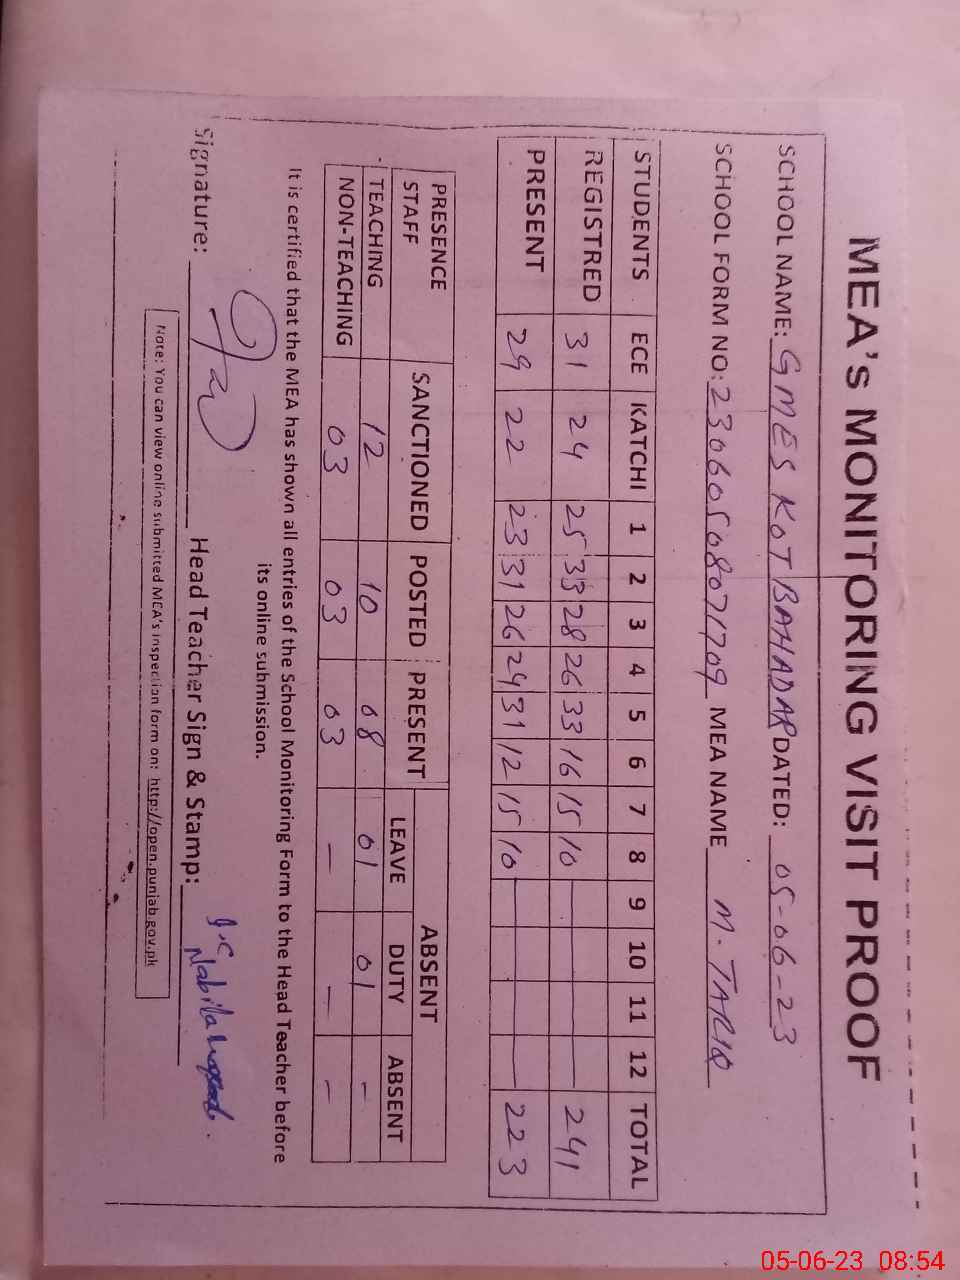 MEA's MONITORING VISIT PROOF
SCHOOL NAME: GMES KOT BAHADAR DATED: 05-06-23
SCHOOL FORM NO: 23060508071709 MEA NAME M. TARIQ
STUDENTS ECE KATCHI 1 2 3 4 5 6 7 8 9 10 11 12 TOTAL
REGISTRED 31 24 25 33 28 26 33 16 15 10 241
PRESENT 29 22 23 31 26 24 31 12 15 10 223
PRESENCE STAFF SANCTIONED POSTED PRESENT ABSENT
LEAVE DUTY ABSENT
TEACHING 12 10 08 01 01 –
NON-TEACHING 03 03 03 – – –
It is certified that the MEA has shown all entries of the School Monitoring Form to the Head Teacher before
its online submission.
Signature: Head Teacher Sign & Stamp: I.C
Nabila
Note: You can view online submitted MEA's inspection form on: http://open.punjab.gov.pk
05-06-23 08:54